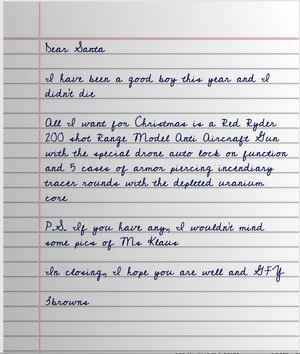 Dear Santa
I have been a good boy this year and I
didn't die
All I want for Christmas is a Red Ryder
200 shot Range Model Anti Aircraft Gun
with the special drone auto lock on function
and 5 cases of armor piercing incendiary
tracer rounds with the depleted uranium
core
P.S. If you have any, I wouldn't mind
some pics of Ms Klaus
In closing, I hope you are well and GFY
3browns